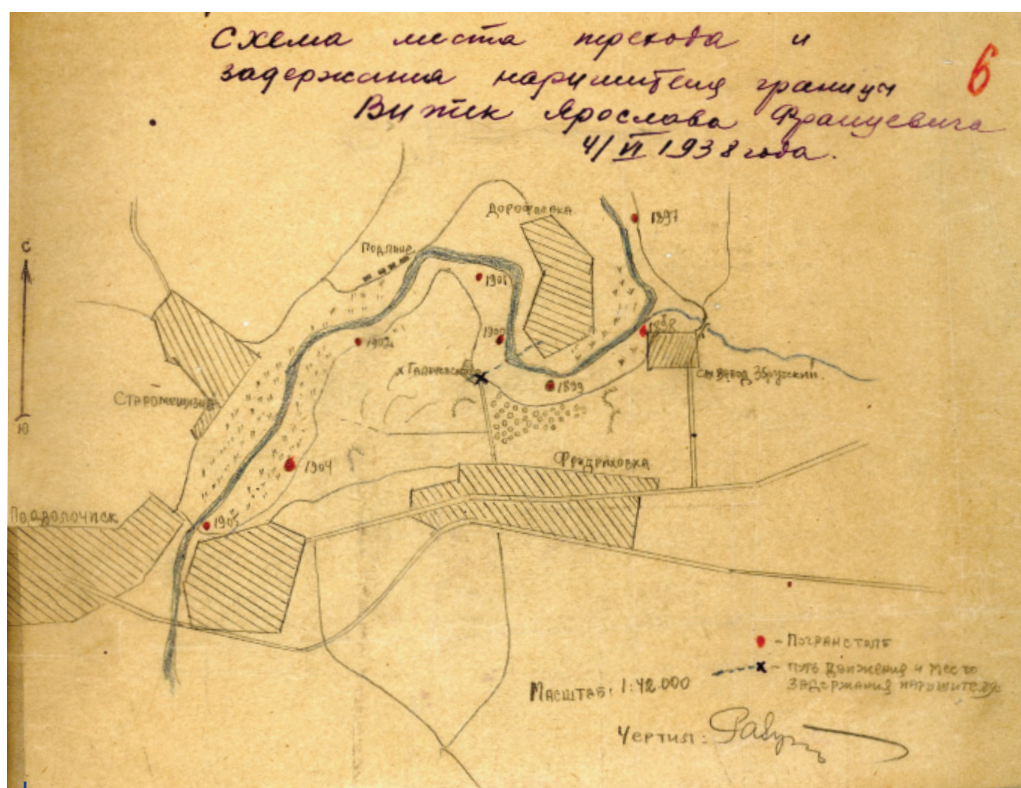 Схема места перехода и
задержания нарушителя границы
Витек Ярослава Францевича
4/VI 1938 года.
6
С
Ю
Дорофеевка
1897
Подпил.
1901
1900
1898
1902
1899
Староміщизна
1904
Фридриховка
Подволочиск
1905
- Погранстолб
- путь движения и место
задержания нарушителя
Масштаб: 1:42.000
Чертил: